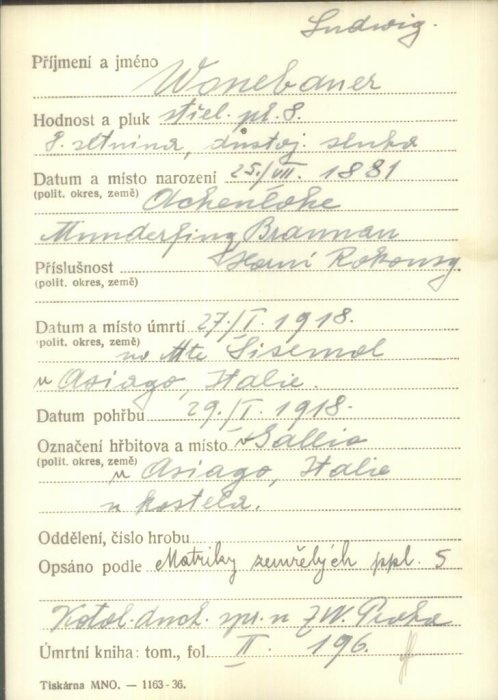 Ludwig.
Příjmení a jméno
Wonebauer
Hodnost a pluk střel. pl. 8.
8. setnina, důstoj. sluha
Datum a místo narození 25./VIII. 1881
(polit. okres, země) Achenlohe
Munderfing, Braunau
Příslušnost Horní Rakousy.
(polit. okres, země)
Datum a místo úmrtí 27/I. 1918.
(polit. okres, země) na Mte Sisemol
u Asiago, Italie.
Datum pohřbu 29./I. 1918.
Označení hřbitova a místo v Gallio
(polit. okres, země) u Asiago, Italie
u kostela.
Oddělení, číslo hrobu
Opsáno podle Matriky zemřelých ppl. 5
Katol. duch. spr. u Z.V. Praha
Úmrtní kniha: tom., fol. II. 196.
Tiskárna MNO. — 1163-36.